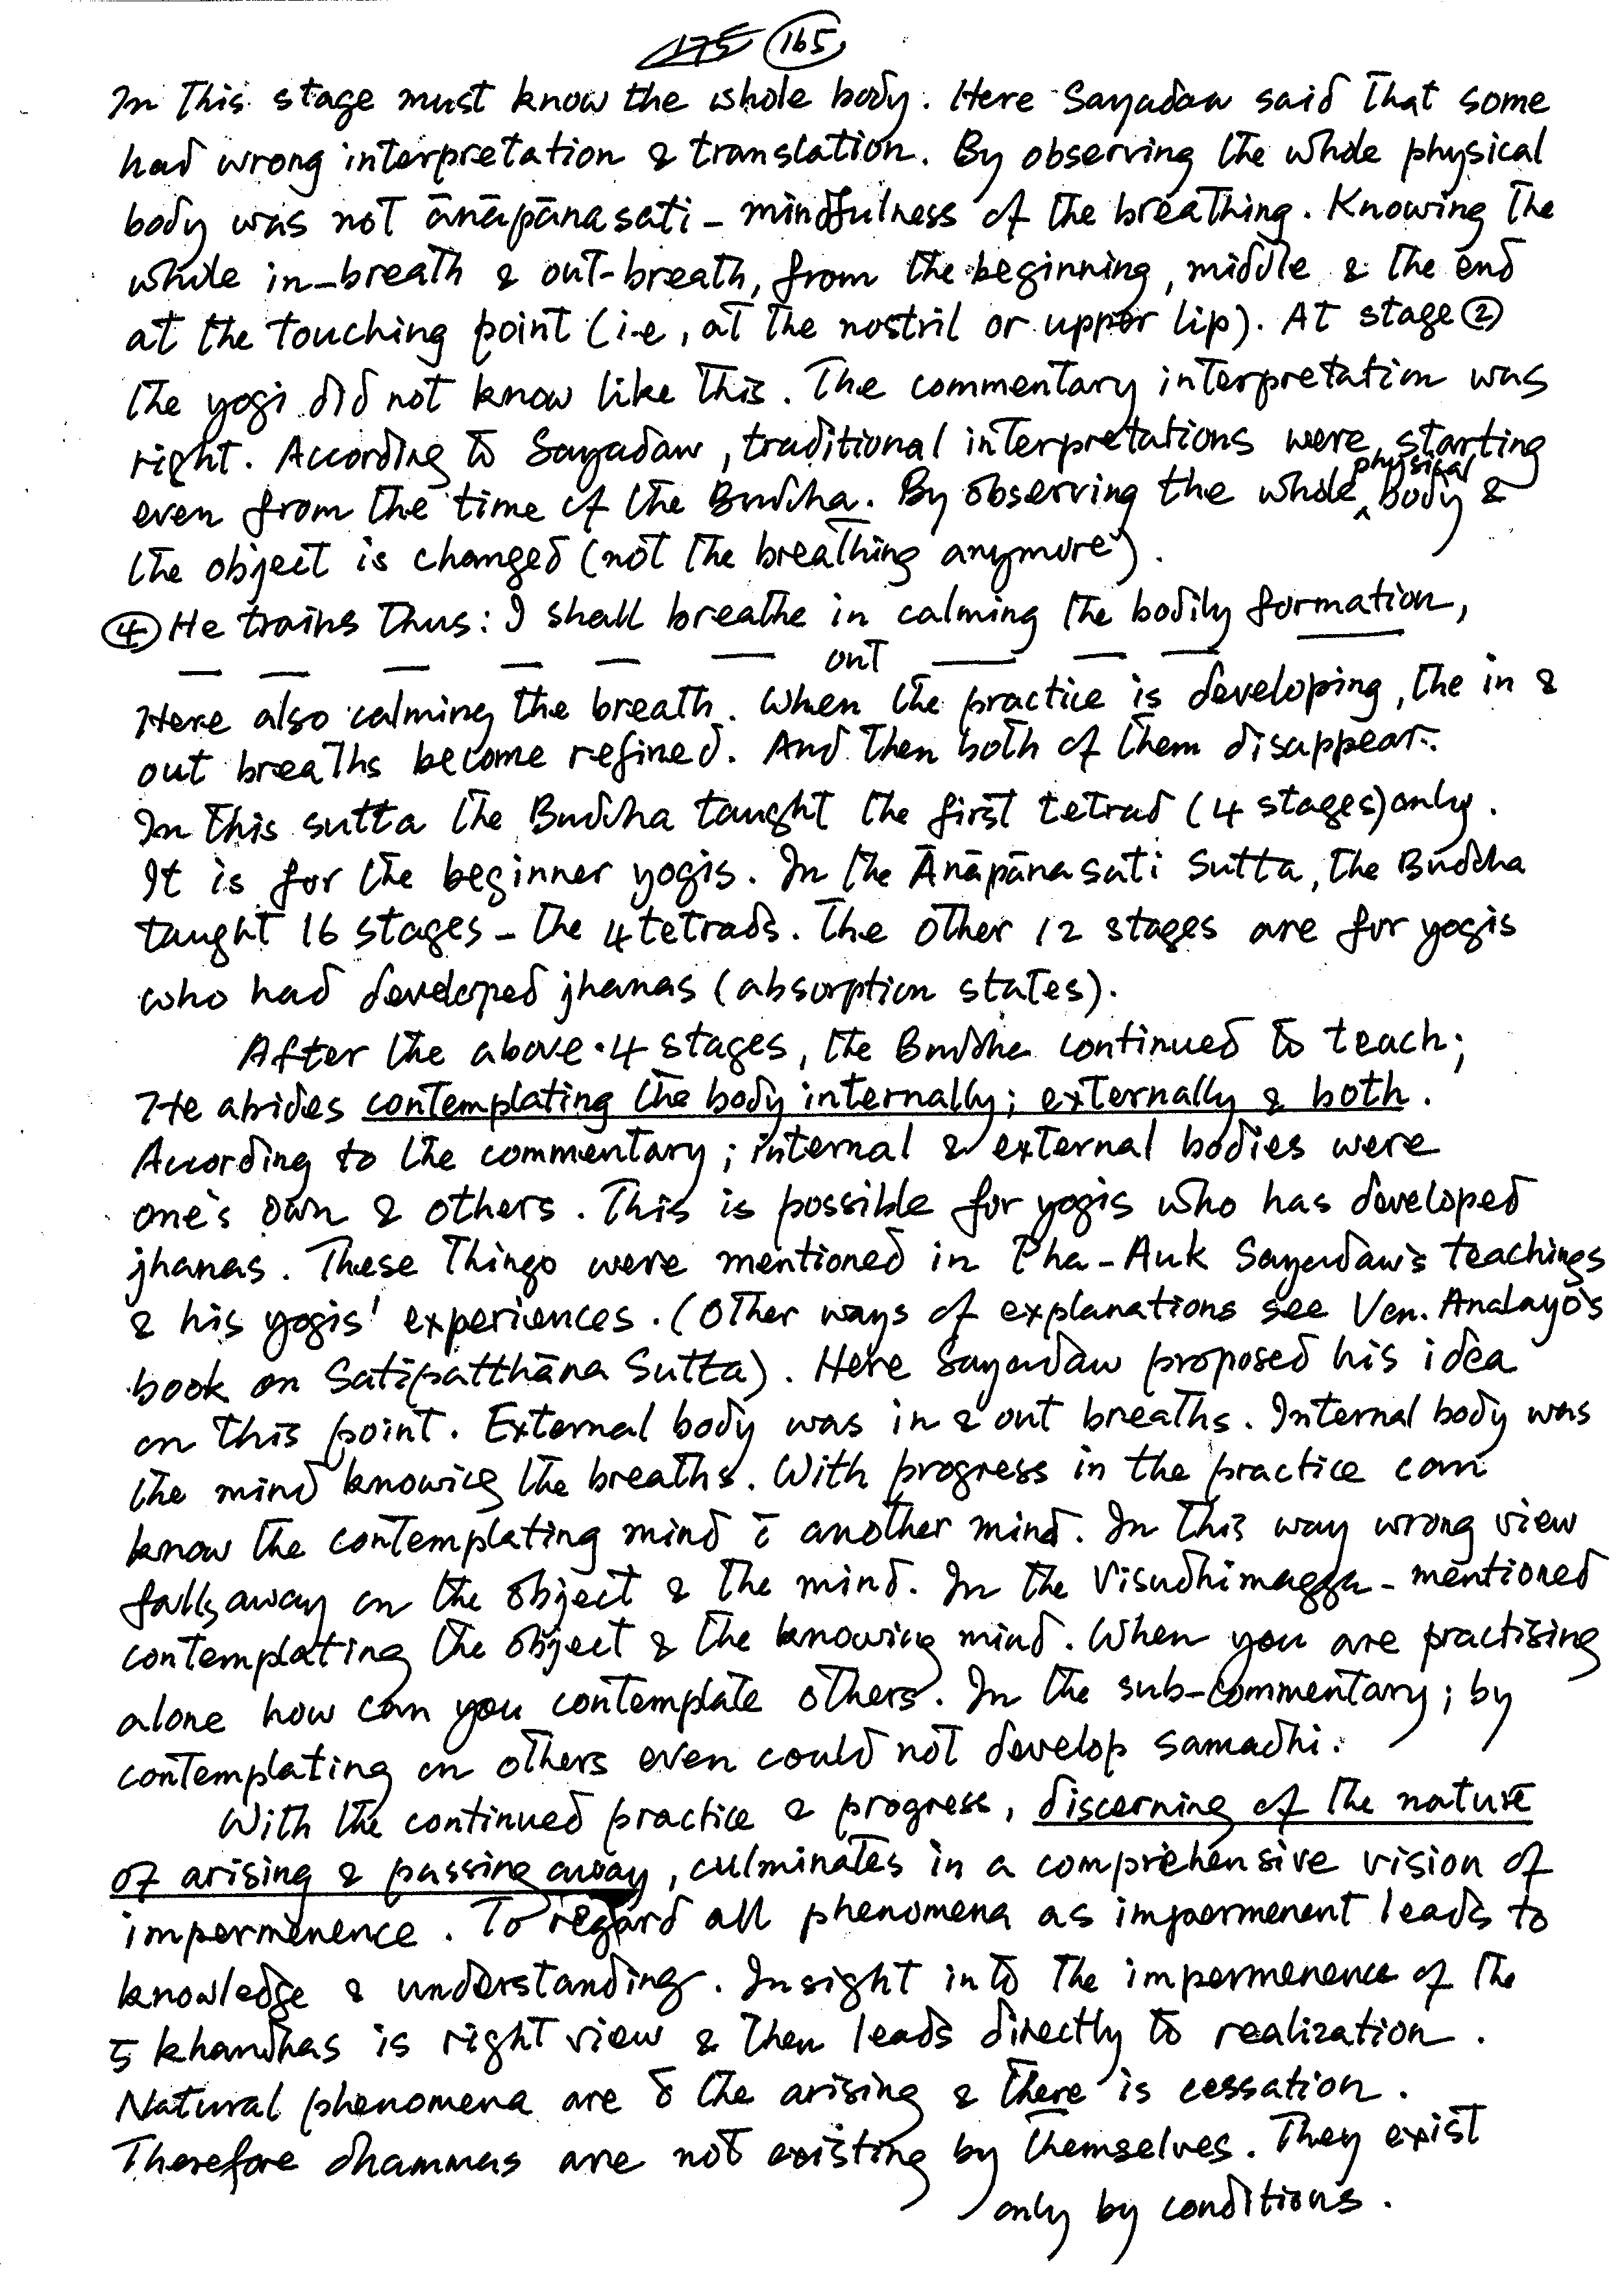 175 165
In this stage must know the whole body. Here Sayadaw said that some
had wrong interpretation & translation. By observing the whole physical
body was not ānāpānasati – mindfulness of the breathing. Knowing the
whole in-breath & out-breath, from the beginning, middle & the end
at the touching point (i.e, at the nostril or upper lip). At stage ②
the yogi did not know like this. The commentary interpretation was
right. According to Sayadaw, traditional interpretations were starting
even from the time of the Buddha. By observing the whole physical body &
the object is changed (not the breathing anymore).
④ He trains thus: I shall breathe in calming the bodily formation,
— — — — — — out — — — —
Here also calming the breath. When the practice is developing, the in &
out breaths become refined. And then both of them disappear.
In this sutta the Buddha taught the first tetrad (4 stages) only.
It is for the beginner yogis. In the Ānāpānasati Sutta, the Buddha
taught 16 stages – the 4 tetrads. The other 12 stages are for yogis
who had developed jhanas (absorption states).
After the above 4 stages, the Buddha continued to teach;
He abides contemplating the body internally; externally & both.
According to the commentary; internal & external bodies were
one's own & others. This is possible for yogis who has developed
jhanas. These things were mentioned in Pha-Auk Sayadaw's teachings
& his yogis' experiences. (Other ways of explanations see Ven. Analayo's
book on Satipatthāna Sutta). Here Sayadaw proposed his idea
on this point. External body was in & out breaths. Internal body was
the mind knowing the breaths. With progress in the practice can
know the contemplating mind c̄ another mind. In this way wrong view
falls away on the object & the mind. In the Visudhimagga – mentioned
contemplating the object & the knowing mind. When you are practising
alone how can you contemplate others. In the sub-commentary; by
contemplating on others even could not develop samadhi.
With the continued practice & progress, discerning of the nature
of arising & passing away, culminates in a comprehensive vision of
impermenence. To regard all phenomena as impermenent leads to
knowledge & understanding. Insight into the impermenence of the
5 khandhas is right view & then leads directly to realization.
Natural phenomena are the arising & there is cessation.
Therefore dhammas are not existing by themselves. They exist
only by conditions.